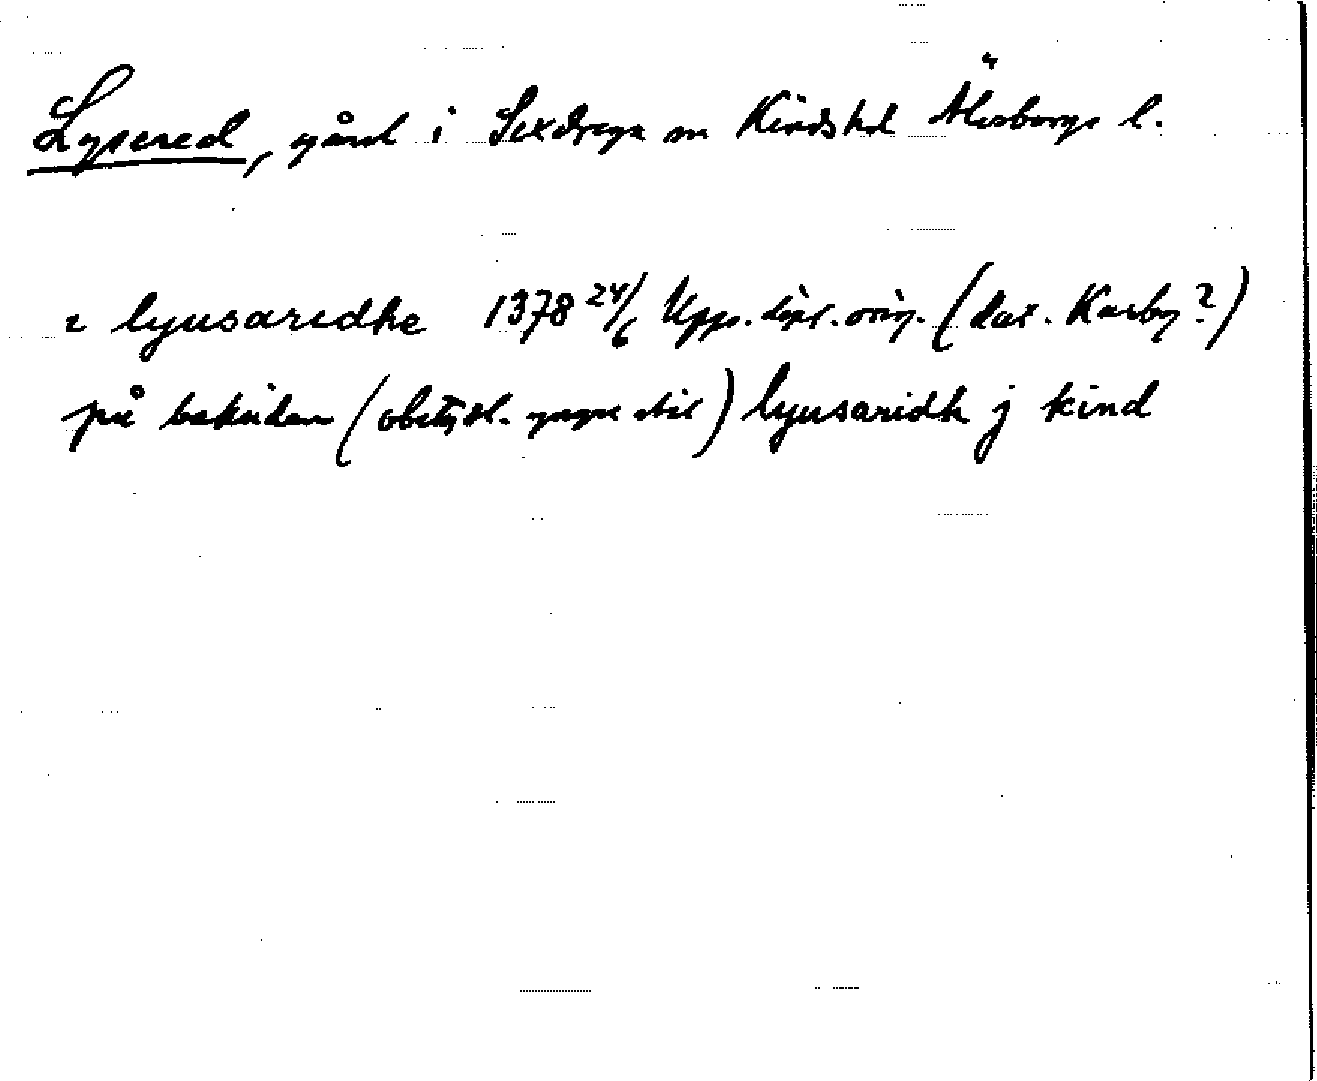 Lysered, gård i Sexdrega sn Kinds hd Älvsborgs l.
i lyusaredhe 1378 24/6 Upps. dipl. orig. (dat. Karby?)
på baksidan (obetydl. yngre stil) lyusaridh j kind